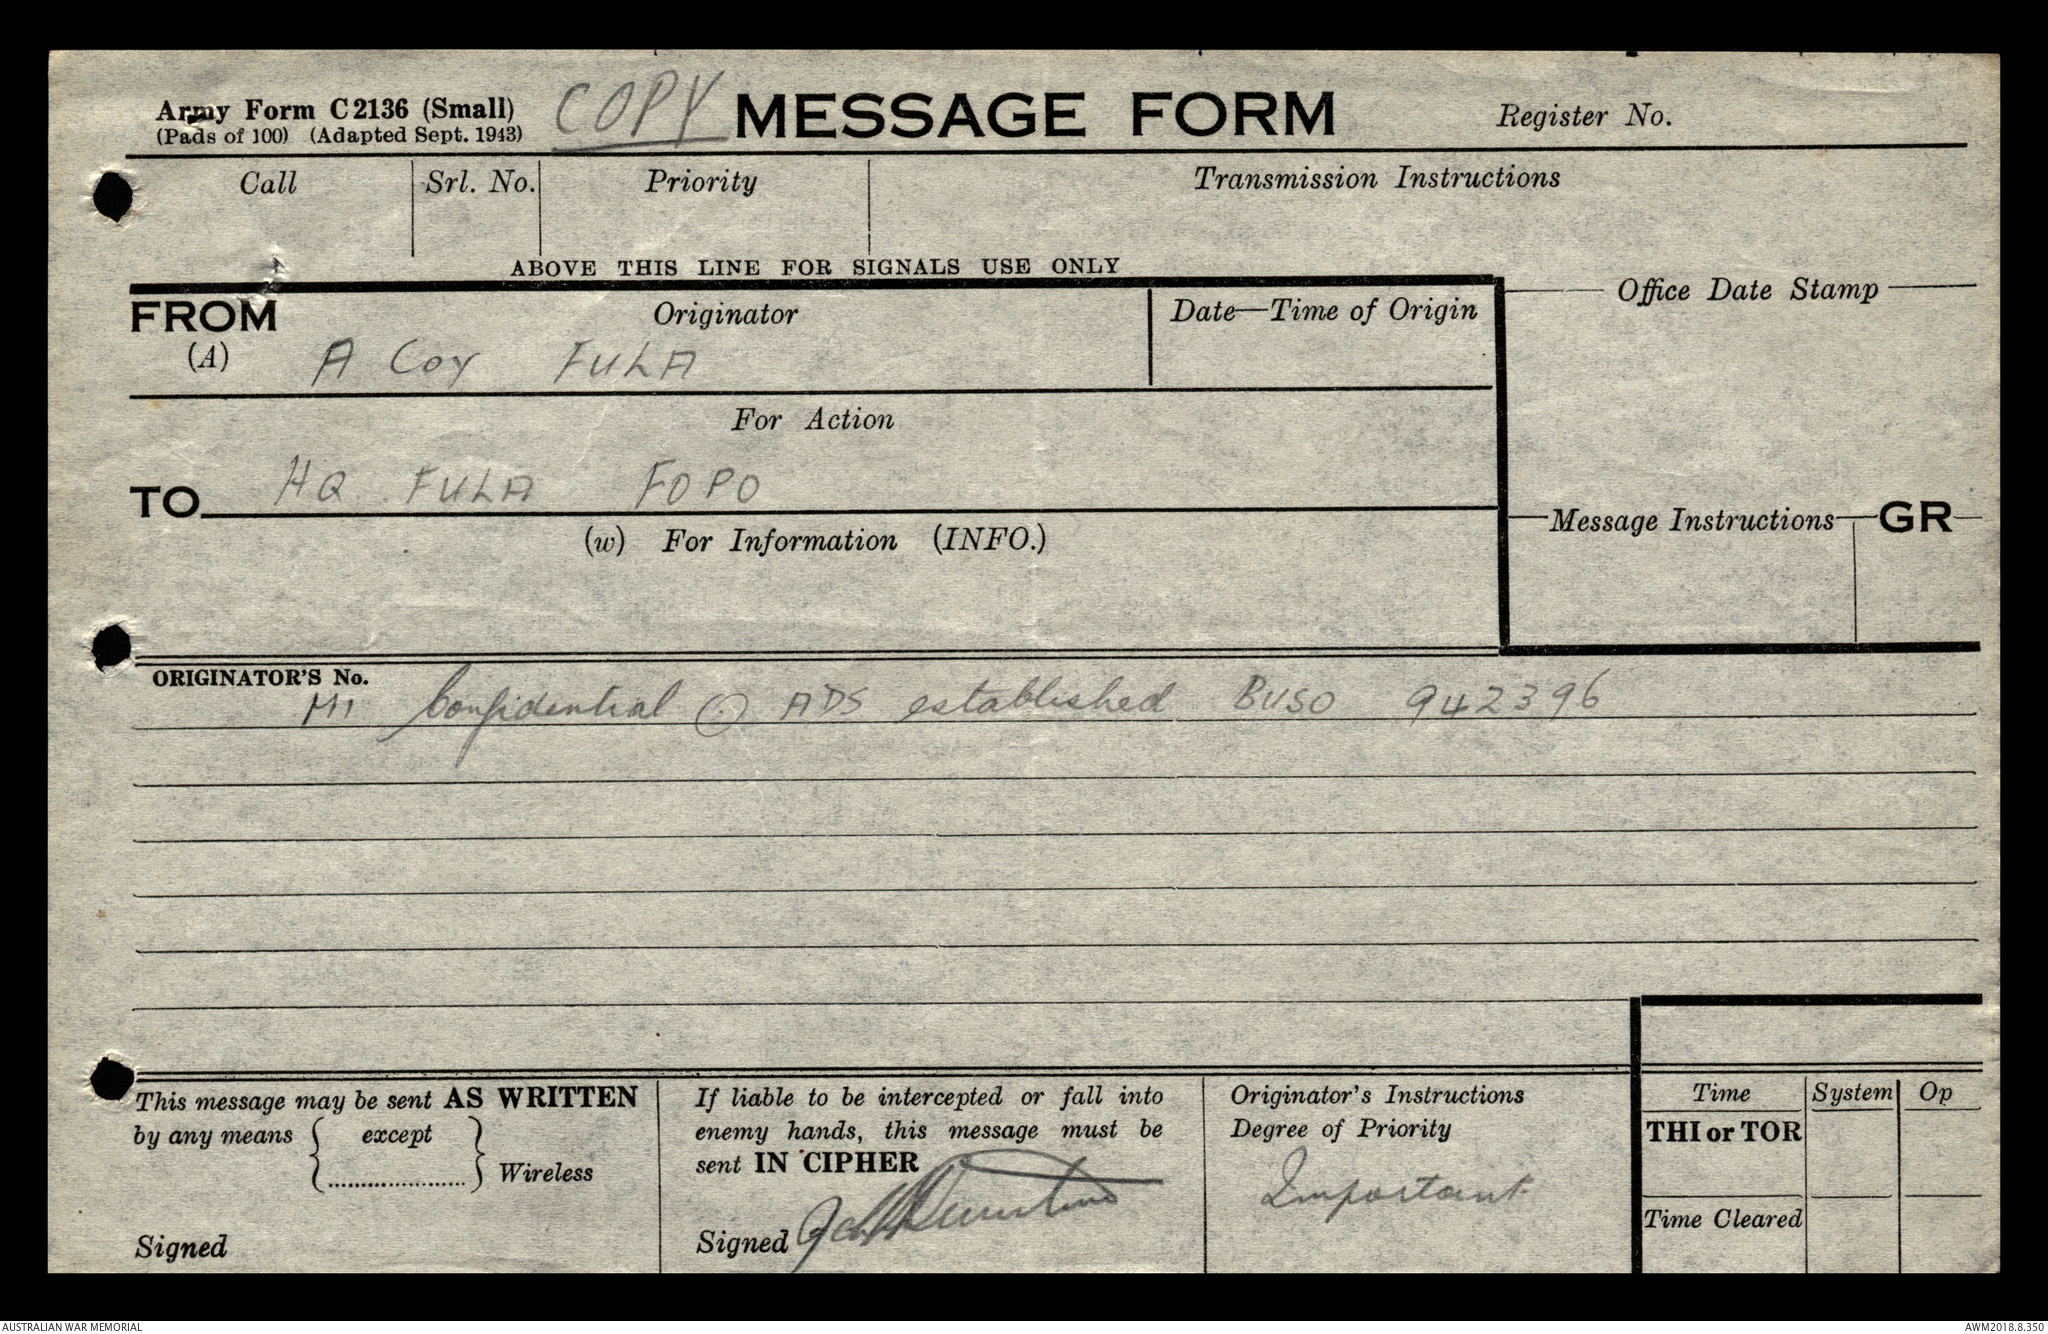 Army Form C2136 (Small)
(Pads of 100) (Adapted Sept. 1943)
COPY
MESSAGE FORM
Register No.
Call
Srl. No.
Priority
Transmission Instructions
ABOVE THIS LINE FOR SIGNALS USE ONLY
FROM
(A)
Originator
A Coy FULA
Date—Time of Origin
Office Date Stamp
For Action
TO
HQ FULA FOPO
(w) For Information (INFO.)
Message Instructions
GR
ORIGINATOR'S No.
M1 Confidential ⊙ ADS established BUSO 942396
This message may be sent AS WRITTEN
by any means { except
..................... } Wireless
Signed
If liable to be intercepted or fall into
enemy hands, this message must be
sent IN CIPHER
Signed
Originator's Instructions
Degree of Priority
Important
Time
System
Op
THI or TOR
Time Cleared
AUSTRALIAN WAR MEMORIAL
AWM2018.8.350